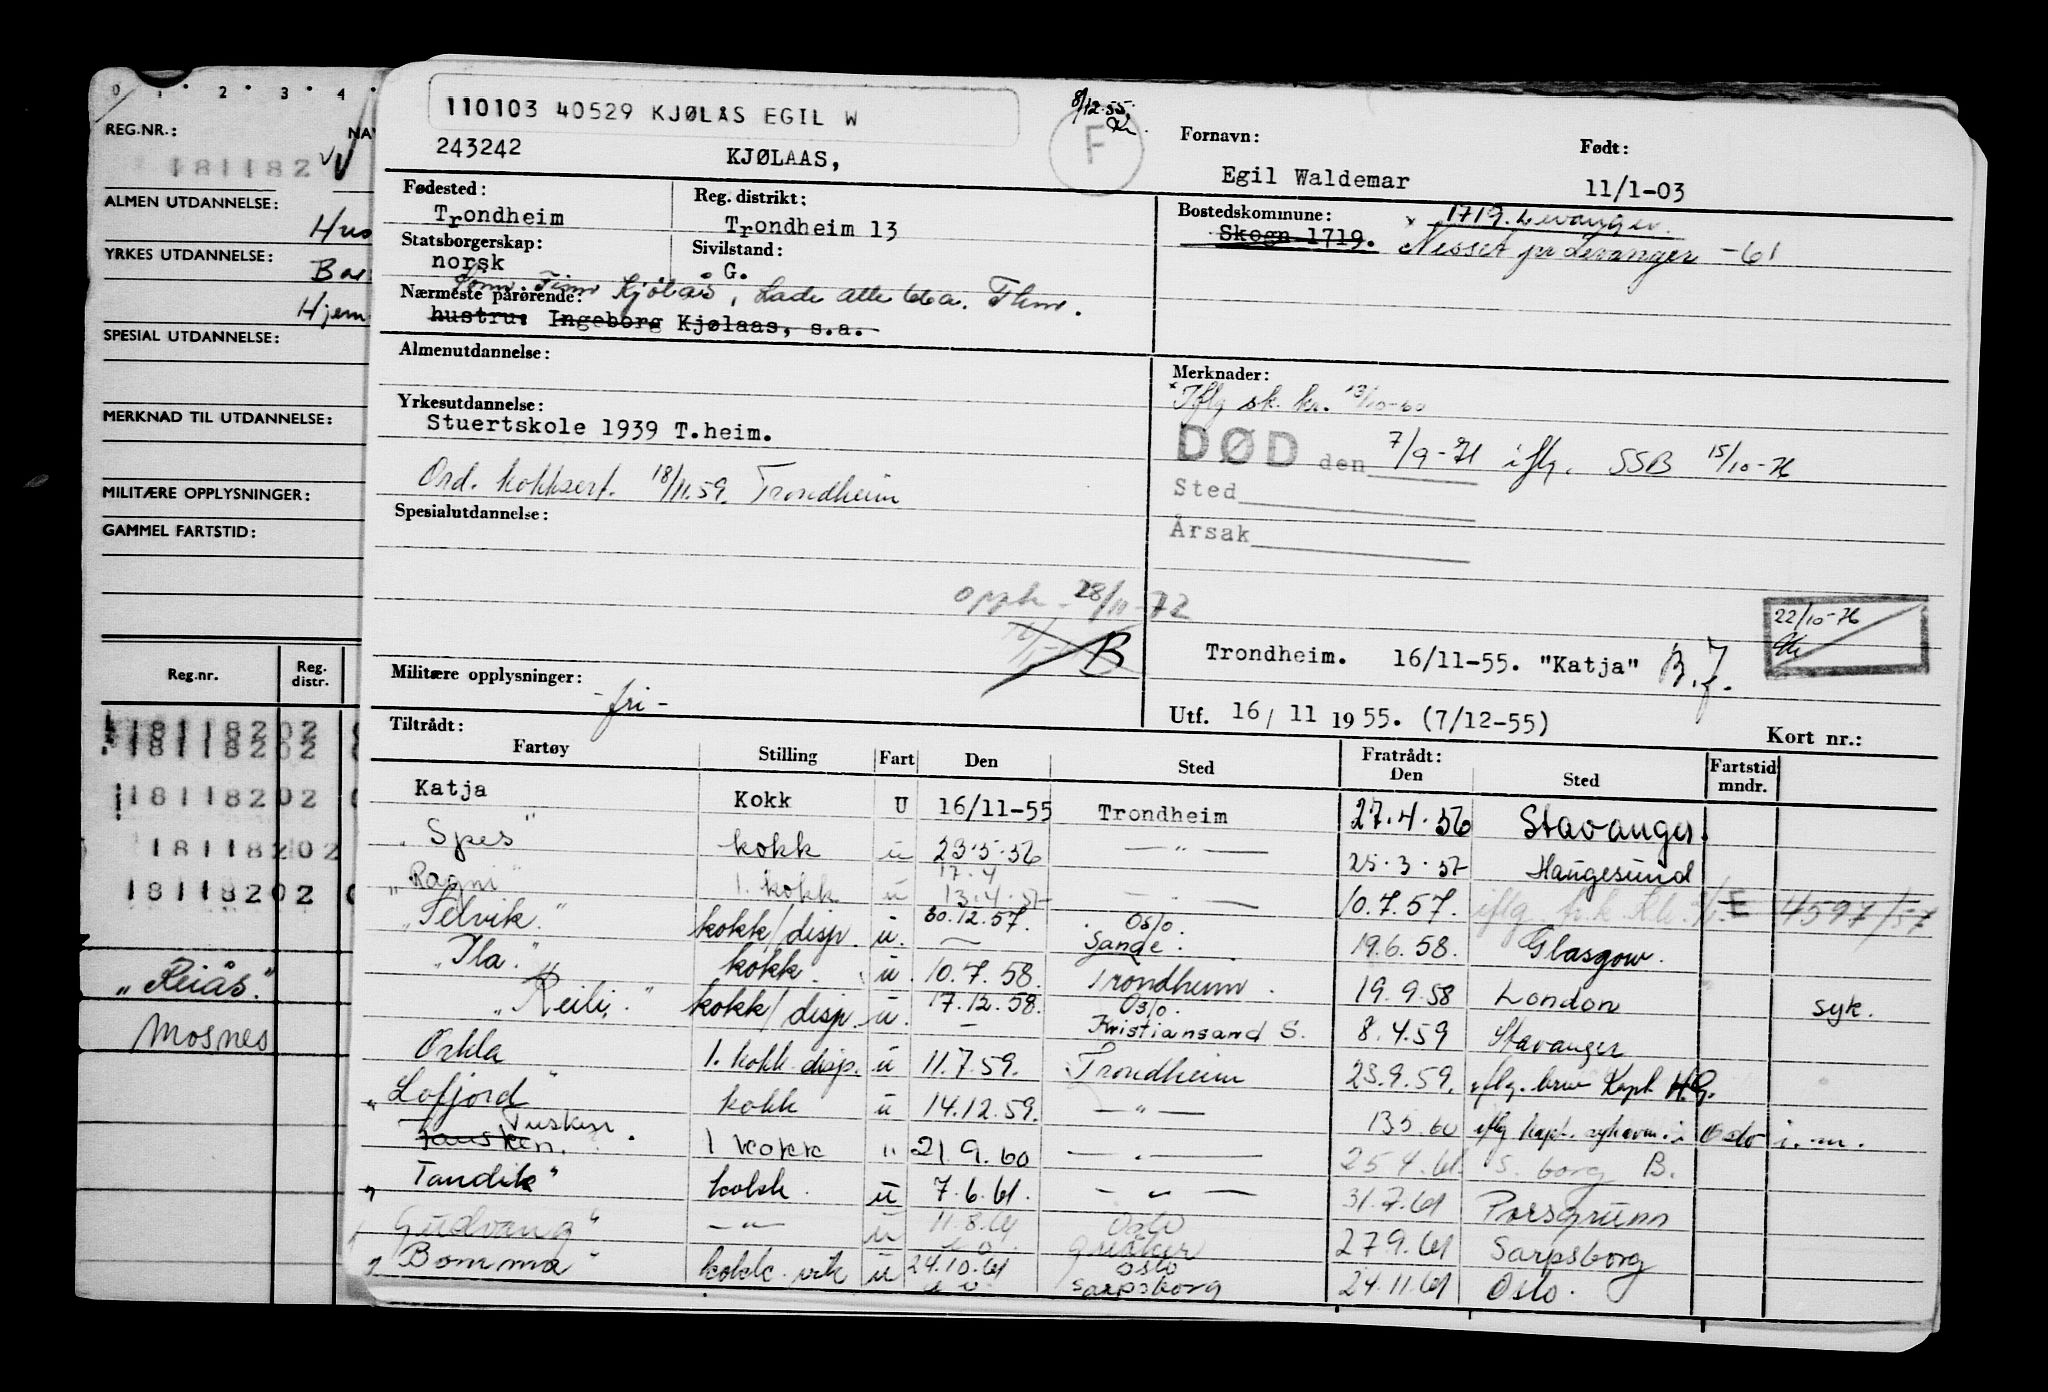 0 1 2 3 4
REG.NR.:
181182
ALMEN UTDANNELSE:
YRKES UTDANNELSE:
SPESIAL UTDANNELSE:
MERKNAD TIL UTDANNELSE:
MILITÆRE OPPLYSNINGER:
GAMMEL FARTSTID:
Reg.nr. Reg. distr.
18118202
18118202
18118202
18118202
18118202
"Reiås."
Mosnes
110103 40529 KJØLÅS EGIL W
243242 KJØLAAS,
8/12.55.
F
Fornavn: Født:
Egil Waldemar 11/1-03
Fødested: Reg. distrikt: Bostedskommune: x 1719. Levanger.
Trondheim Trondheim 13 Skogn 1719. Nesset pr Levanger -61
Statsborgerskap: Sivilstand:
norsk G.
Sønn: Finn Kjølås, Lade alle 66a. Thm.
Nærmeste pårørende:
hustru: Ingeborg Kjølaas, s.a.
Almenutdannelse: Merknader:
x Iflg sk. kr. 13/10-60
Yrkesutdannelse:
Stuertskole 1939 T.heim.
DØD den 7/9-71 iflg. SSB 15/10-76
Ord. kokksert. 18/11.59. Trondheim
Sted
Spesialutdannelse:
Årsak
opph. 28/11-72
B
22/10-76
Trondheim. 16/11-55. "Katja" B.f.
Militære opplysninger: -fri-
Utf. 16/11 1955. (7/12-55)
Tiltrådt: Kort nr.:
Fartøy Stilling Fart Den Sted Fratrådt: Den Sted Fartstid mndr.
Katja Kokk U 16/11-55 Trondheim 27.4.56 Stavanger.
"Spes" kokk u 23.5.56 — " — 25.3.57 Haugesund
17.4
"Ragni" 1. kokk u 13.4.57 — " — 10.7.57. iflg. E 4597/57
"Selvik." kokk/disp. u. 30.12.57. Oslo. Sande. 19.6.58. Glasgow.
"Ila." kokk. u. 10.7.58. Trondheim. 19.9.58 London syk.
"Reili." kokk/disp. u. 17.12.58. Oslo. Kristiansand S. 8.4.59 Stavanger
Orkla 1. kokk disp. u 11.7.59. Trondheim 23.9.59. iflg. brev Kapt. H.G.
"Lofjord" kokk u 14.12.59. — " — 13.5.60 iflg kapt. sykeavm. i Oslo i.m.
Tusken.
1 kokk " 21.9.60 — " — 25.4.61. S.borg B.
"Tandik" kokk. u 7.6.61. — " — 31.7.61 Porsgrunn
"Gudvang" — " — u 11.8.61 Oslo Greåker 27.9.61 Sarpsborg
"Bomma" kokk. vik u 24.10.61 Oslo Sarpsborg 24.11.61 Oslo.